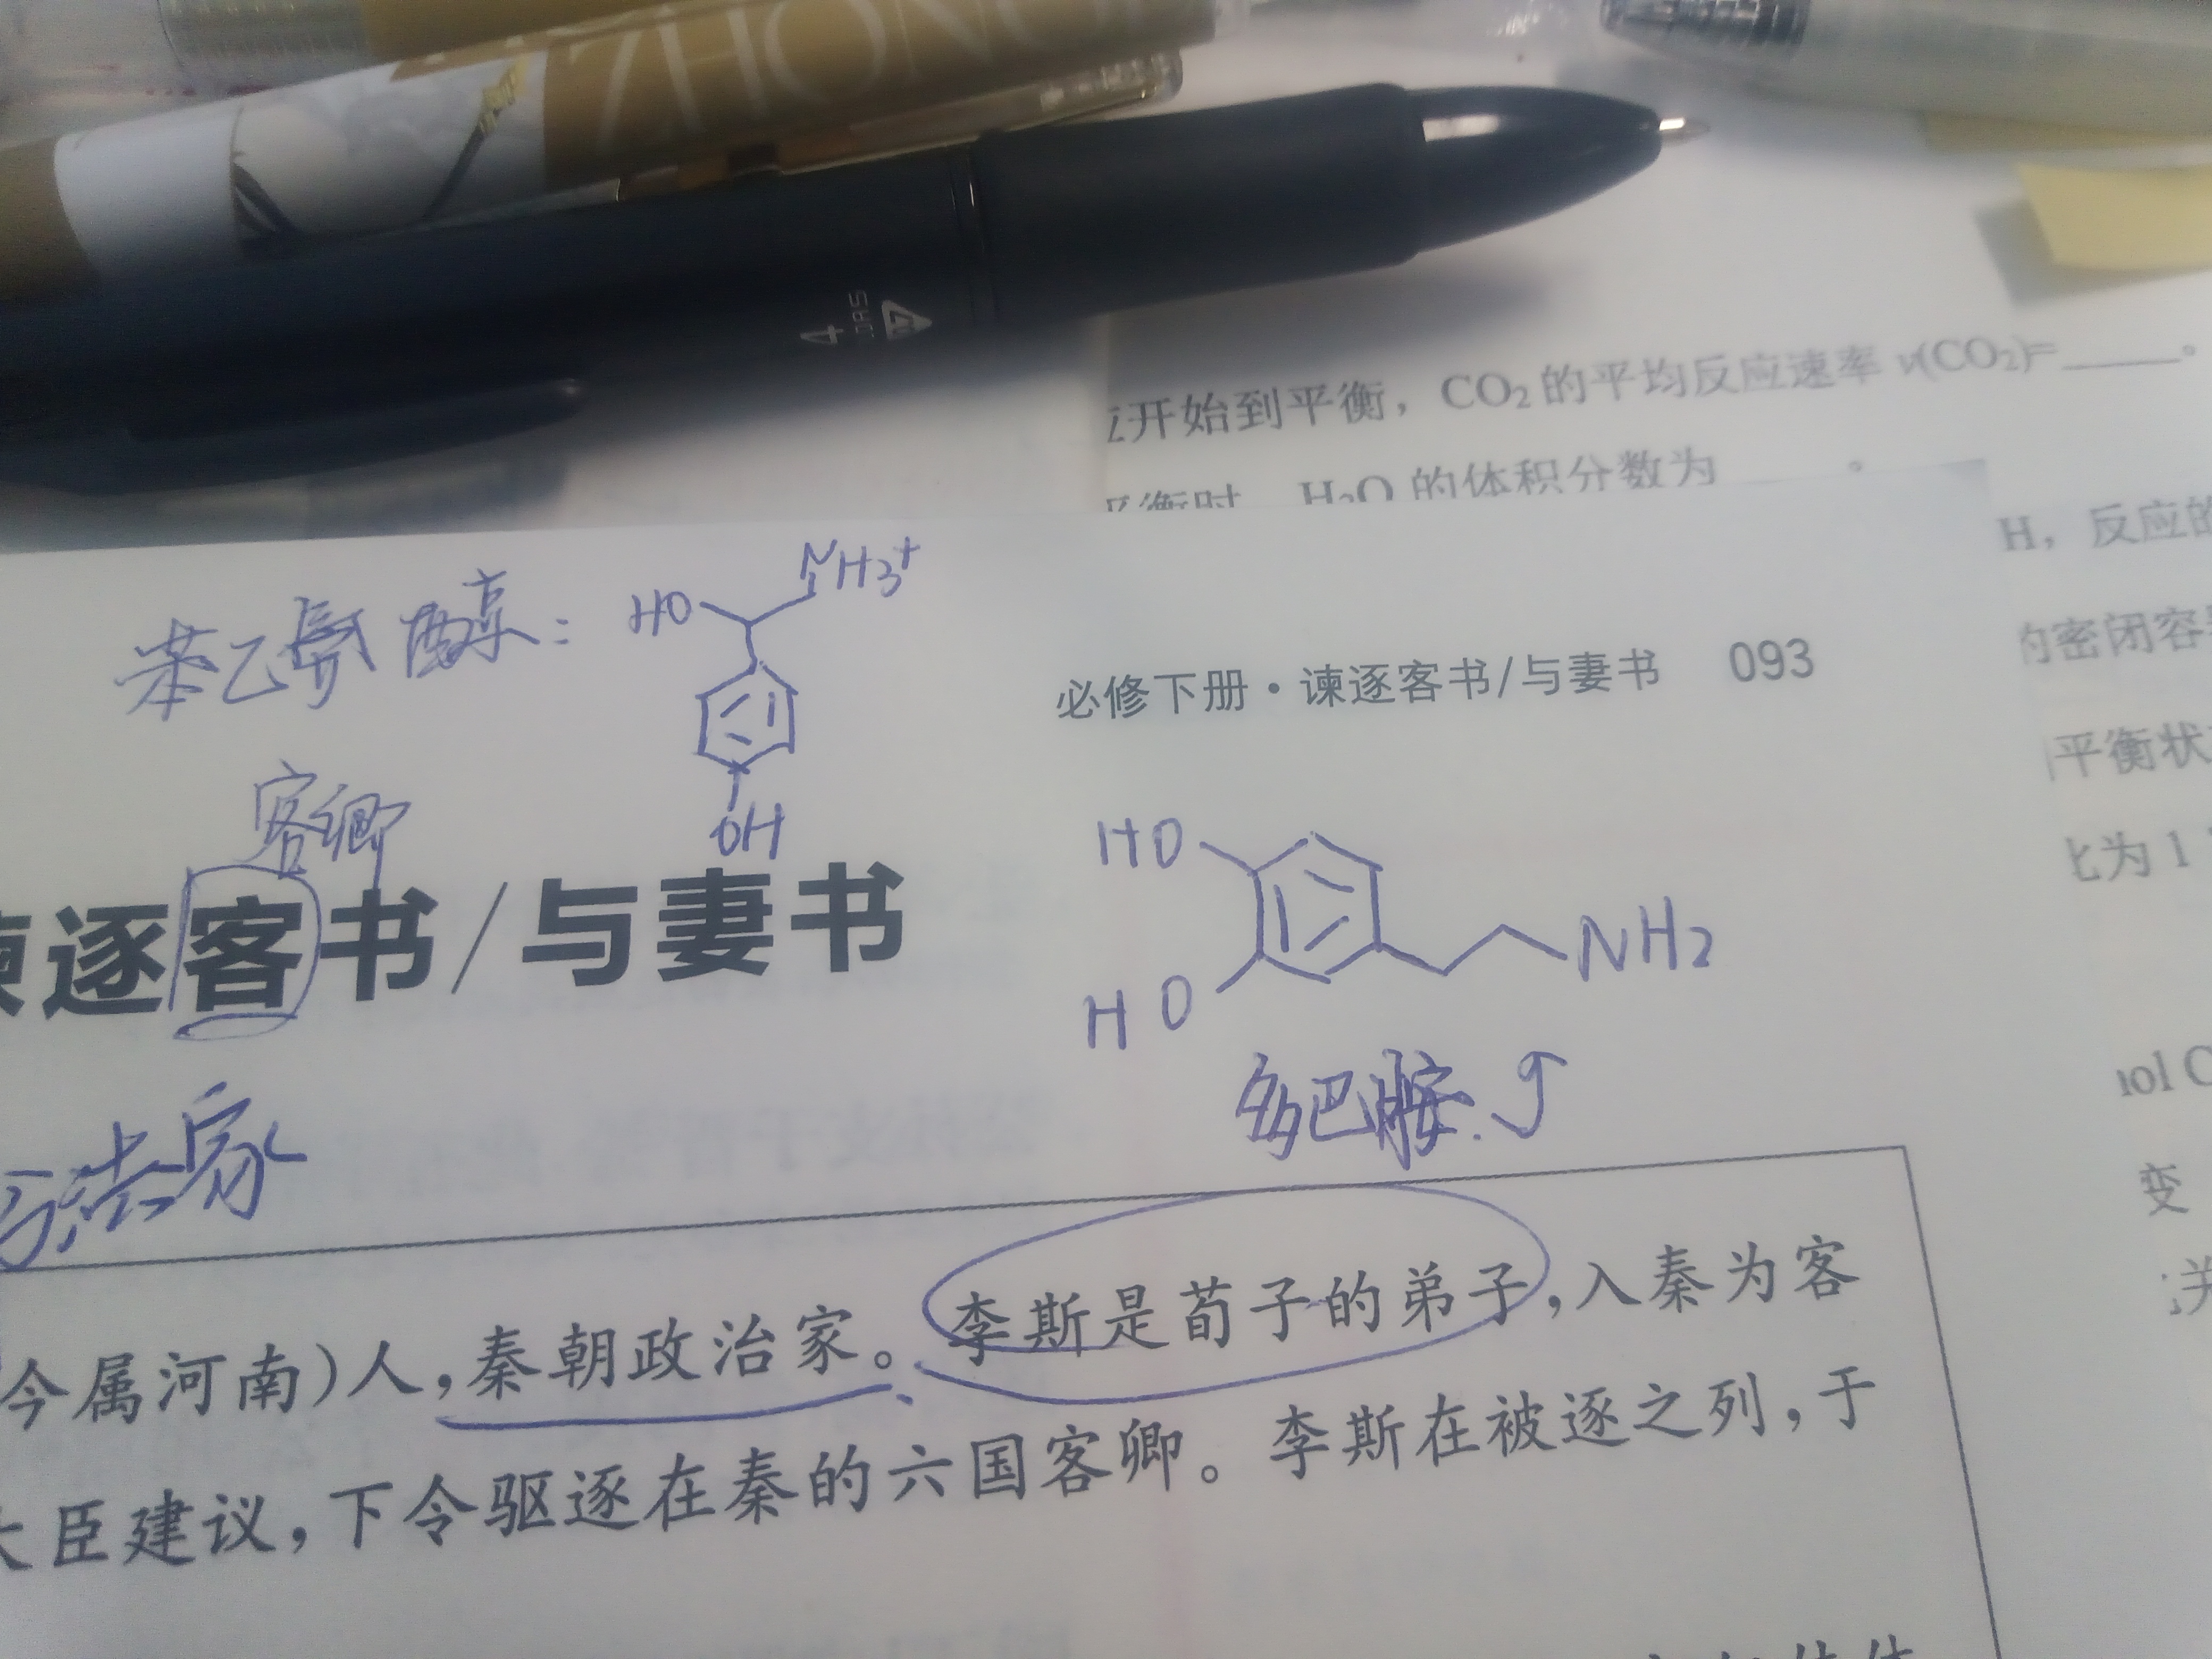 ZHONG
4
0.7
开始到平衡，CO₂的平均反应速率 v(CO₂)=____。
平衡时，H₂O 的体积分数为____。
H，反应的
的密闭容
平衡状
比为 1
mol C
变
关
HO NH3+
OH
必修下册·谏逐客书/与妻书 093
客卿
谏逐客书/与妻书
HO
HO NH2
多巴胺.
法家
今属河南)人,秦朝政治家。李斯是荀子的弟子,入秦为客
大臣建议,下令驱逐在秦的六国客卿。李斯在被逐之列,于